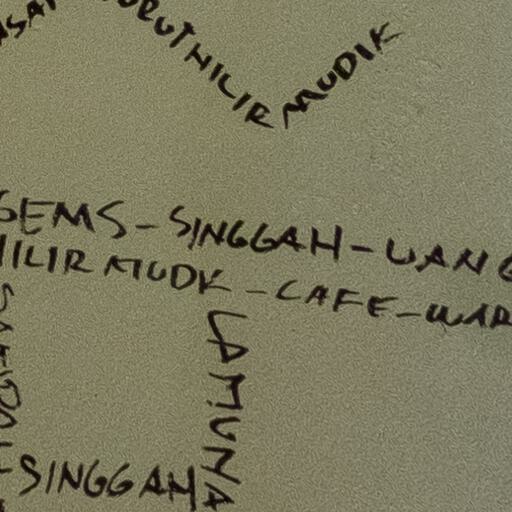 HILIR MUDIK
GEMS-SINGGAH-UANG
HILIR MUDK-CAFE-WAR
LAMUNA
SINGGAH